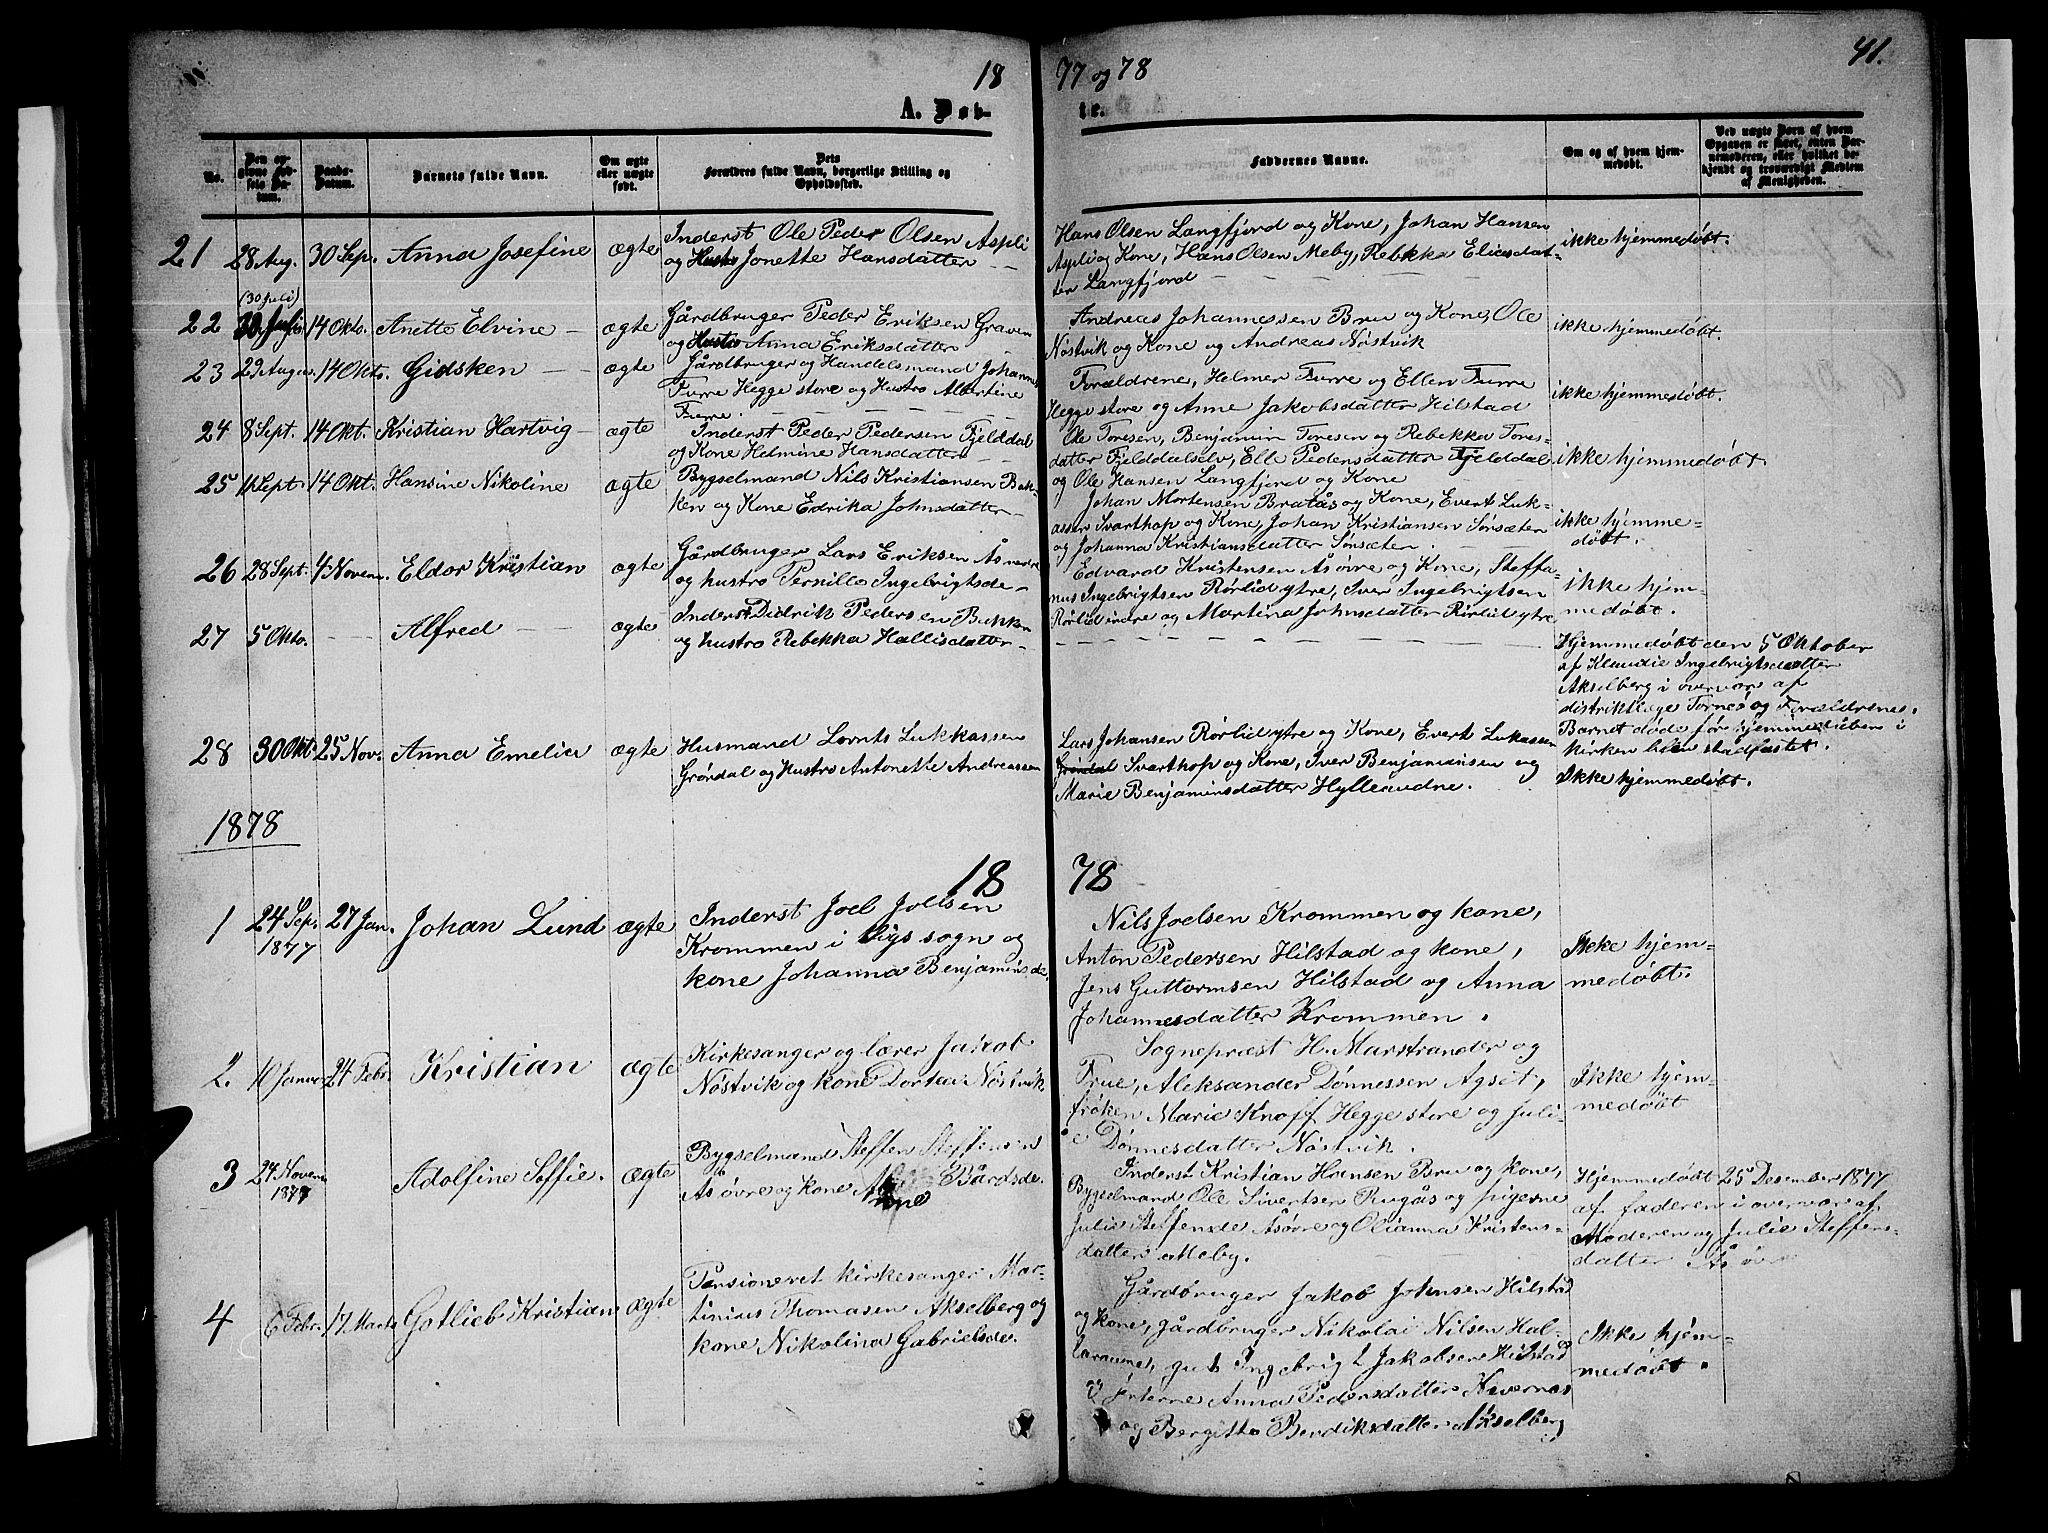 18 77 og 78 41.
A. Døb- te.
No.
Den opgivne Fødsels Datum.
Daabs-Datum.
Barnets fulde Navn.
Om ægte eller uægte født.
Dets Forældres fulde Navn, borgerlige Stilling og Opholdssted.
Faddernes Navne.
Om og af hvem hjemmedøbt.
Ved uægte Børn af hvem Opgaven er skeet, enten Barnemoderen, eller hvilket bekjendt og troværdigt Medlem af Menigheden.
21 28 Aug. 30 Sep. Anna Josefine ægte
Inderst Ole Peder Olsen Aspli
og Hustro Jonette Hansdatter
Hans Olsen Langfjord og Kone, Johan Hansen
Aspli og Kone, Hans Olsen Meby, Rebekka Eliasdat-
ter Langfjord
ikke hjemmedøbt.
(30 Juli)
22 14 Okto. Anette Elvine ægte
Gårdbruger Peder Eriksen Graven
og Hustro Anna Eriksdatter
Andreas Johannessen Bru og Kone, Ole
Nøstvik og Kone og Andreas Nøstvik
ikke hjemmedøbt.
23 29 Augus. 14 Okto. Gidsken ægte
Gårdbruger og Handelsmand Johannes
Furre Hegge store og Hustro Albertine
Furre.
Forældrene, Helmer Furre og Ellen Furre
Hegge store og Anne Jakobsdatter Hilstad
ikke hjemmedøbt.
24 8 Sept. 14 Okt. Kristian Hartvig ægte
Inderst Peder Pedersen Fjelddal
og Kone Helmine Hansdatter
Ole Toresen, Benjamin Toresen og Rebekka Tores-
datter Fjelddalselv, Elle Pedersdatter Fjelddal
og Ole Hansen Langfjord og Kone
ikke hjemmedøbt.
25 11 Sept. 14 Okt. Hansine Nikoline ægte
Bygselmand Nils Kristiansen Bak-
ken og Kone Edrika Johnsdatter
Johan Mortensen Bratås og Kone, Evert Luk-
assen Svarthop og Kone, Johan Kristiansen Sørsæter
og Johanna Kristiansdatter Sørsæter.
ikke hjemme-
døbt.
26 28 Sept. 4 Novem. Eldor Kristian ægte
Gårdbruger Lars Eriksen Ås nedre
og hustro Pernille Ingebrigtsde
Edvard Kristensen Åsøvre og Kone, Steffa-
nus Ingebrigtsen Rørlid ytre, Iver Ingebrigtsen
Rørlid indre og Martina Johnsdatter Rørlid ytre
ikke hjem-
medøbt.
27 5 Okto. Alfred ægte
Inderst Didrik Pedersen Bakken
og hustro Rebekka Hallisdatter
Hjemmedøbt den 5 Oktober
af Klaudie Ingebrigtsdatter
Akselberg i overvær af
distriktlæge Tornes og Forældrene.
Barnet døde før hjemmedåben i
kirken blev stadfæstet.
28 30 Okt. 25 Nov. Anna Emelia ægte
Husmand Lornts Lukkassen
Grøndal og Hustro Antonette Andreassen
Lars Johansen Rørlid ytre og Kone, Evert Lukassen
Grøndal Svarthop og Kone, Iver Benjaminsen og
Marie Benjaminsdatter Hylleaudne.
Ikke hjemmedøbt.
1878
18 78
1 24 Sep. 1877 27 Jan. Johan Lund ægte
Inderst Joel Joelsen
Krommen i sogn og
kone Johanna Benjaminsde.
Nils Joelsen Krommen og kone,
Anton Pedersen Hilstad og kone,
Jens Guttormsen Hilstad og Anna
Johannesdatter Krommen.
Ikke hjem-
medøbt.
2. 10 Januar 24 Febr. Kristian ægte
Kirkesanger og lærer Jakob
Nøstvik og kone Dortea Nøstvik
Sognepræst H. Marstrander og
Frue, Aleksander Dønnessen Agset,
frøken Marie Knoff Hegge store og Juli-
e Dønnesdatter Nøstvik.
Ikke hjem-
medøbt
3 24 Novem 1877 Adolfine Soffie. ægte
Bygselmand Steffen Steffensen
Åsøvre og kone Bårdsde.
Inderst Kristian Hansen Bru og kone,
Bygselmand Ole Sivertsen Rugås og pigerne
Julie Steffensde Åsøvre og Olianna Kristens-
datter Meby.
Hjemmedøbt 25 Desember 1877
af faderen i overvær af
Moderen og Julie Steffens-
datter Åsøvre
4 6 Febr. 17 Marts Gotlieb Kristian ægte
Pensioneret kirkesanger Mar-
tinius Thomasen Akselberg og
kone Nikolina Gabrielsde.
Gårdbruger Jakob Johnsen Hilstad
og kone, gårdbruger Nikolai Nilsen Hal-
laraune, gut Ingebrigt Jakobsen Hilstad
Jenterne Anna Pedersdatter Kvernås
og Bergitte Bendiksdatter Akselberg
Ikke hjem-
medøbt.